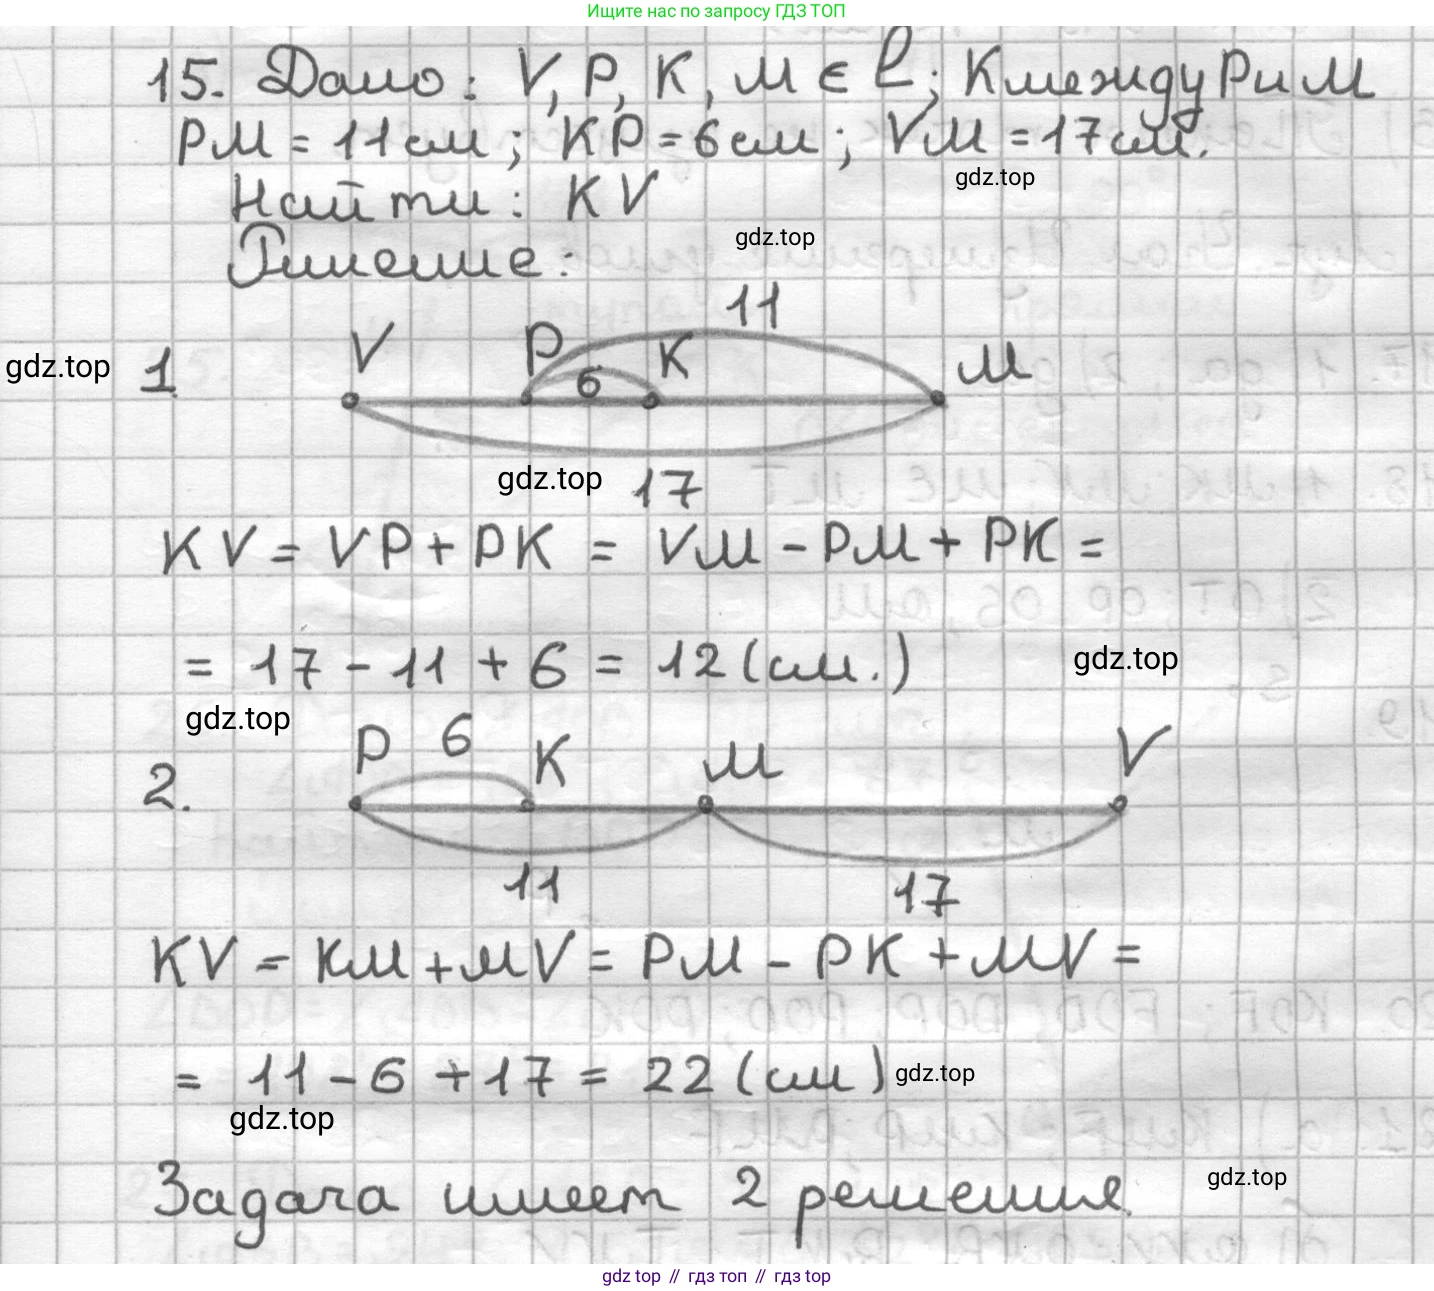 Ищите нас по запросу ГДЗ ТОП
15. Дано: V, P, K, M ∈ l; K между P и M
PM = 11 см; KP = 6 см; VM = 17 см.
gdz.top
Найти: KV
gdz.top
Решение:
11
gdz.top 1. V P 6 K M
gdz.top 17
KV = VP + PK = VM - PM + PK =
= 17 - 11 + 6 = 12 (см.)
gdz.top
gdz.top
2. P 6 K M V
11 17
KV = KM + MV = PM - PK + MV =
= 11 - 6 + 17 = 22 (см)
gdz.top
gdz.top
Задача имеет 2 решения.
gdz.top
gdz top // гдз топ // gdz top